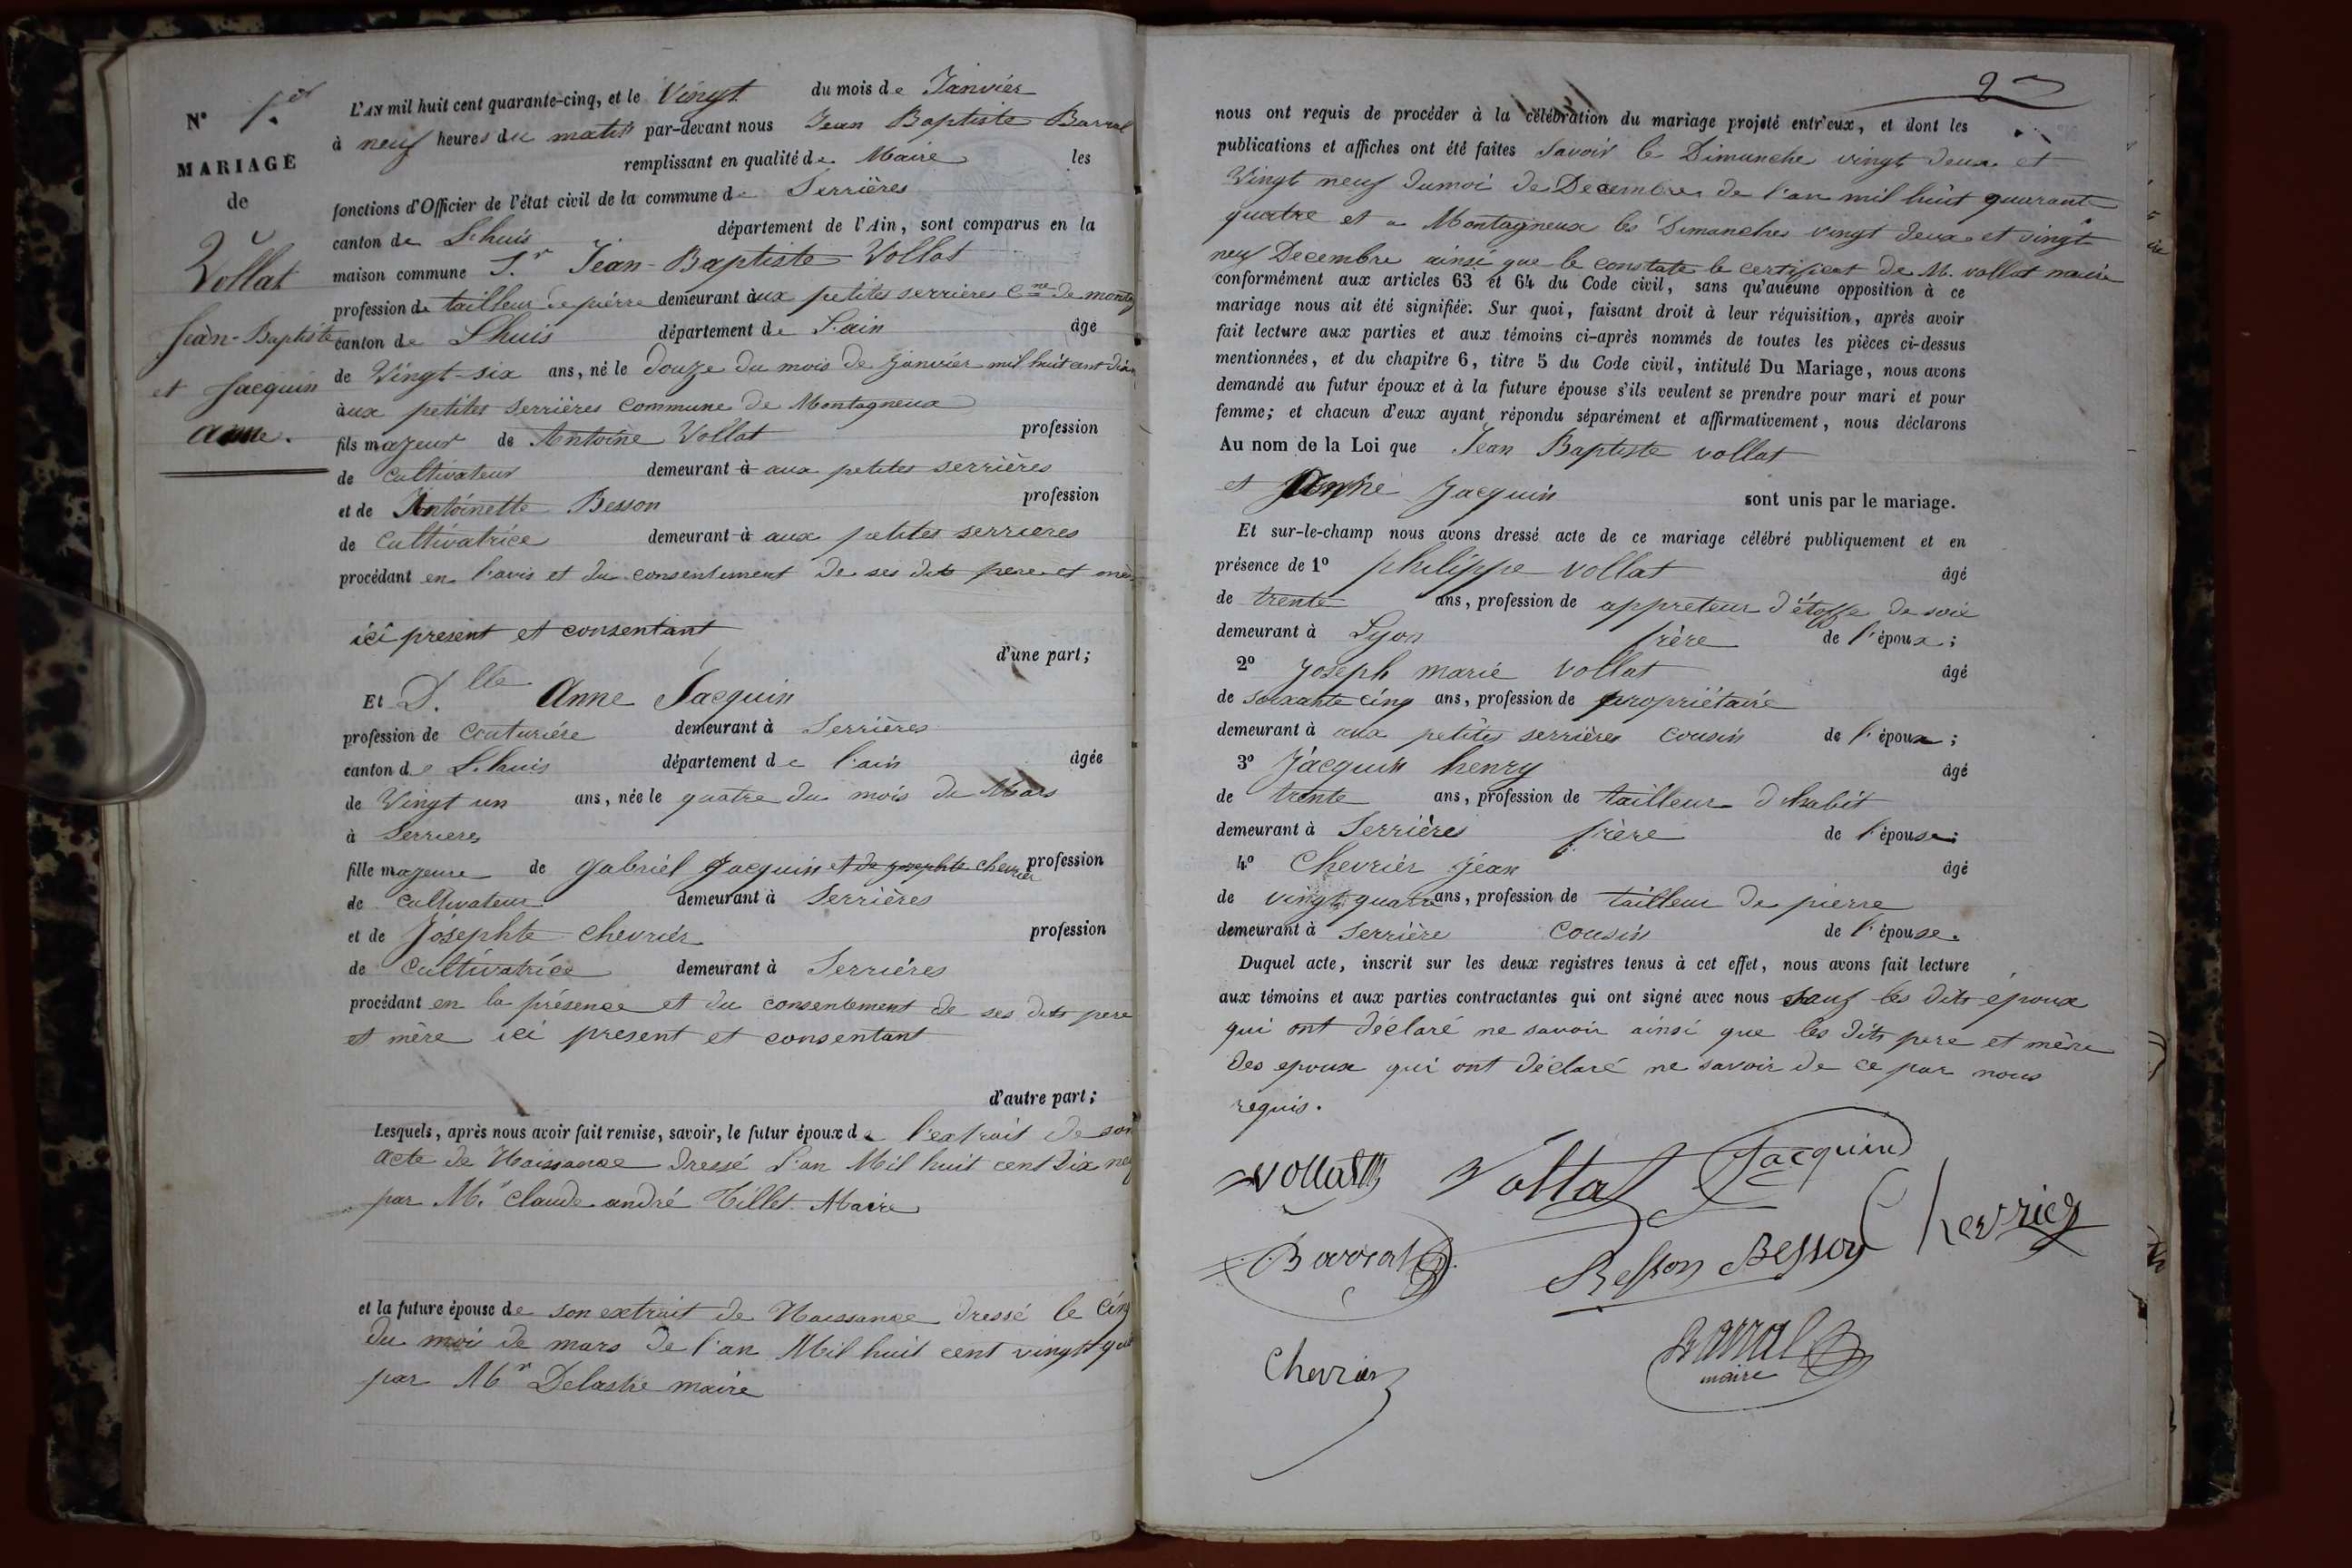 N° 1.er
MARIAGE
de
Vollat
Jean-Baptiste
et Jacquin
anne.
L'AN mil huit cent quarante-cinq, et le Vingt du mois de Janvier
à neuf heures du matin par-devant nous Jean Baptiste Barral
remplissant en qualité de Maire les
fonctions d'Officier de l'état civil de la commune de Serrières
canton de Lhuis département de l'Ain, sont comparus en la
maison commune S.r Jean-Baptiste Vollat
profession de tailleur de pierre demeurant àux petites serrières Cne de montag
canton de Lhuis département de L'ain âgé
de Vingt-six ans, né le douze du mois de janvier mil huit cent dix n
àux petites serrières commune de Montagneux
fils majeur de Antoine Vollat profession
de cultivateur demeurant à aux petites serrières
et de Antoinette Besson profession
de cultivatrice demeurant à aux petites serrieres
procédant en l'avis et du consentement de ses dits pere et mère
ici present et consentant
d'une part;
Et D.lle Anne Jacquin
profession de couturière demeurant à Serrières
canton de L.huis département de l'ain âgée
de Vingt un ans, née le quatre du mois de Mars
à Serrieres
fille majeure de gabriel Jacquin et de josephte chevrier profession
de cultivateur demeurant à Serrières
et de Josephte chevrier profession
de cultivatrice demeurant à Serrières
procédant en la présence et du consentement de ses dits pere
et mère ici present et consentant
d'autre part;
Lesquels, après nous avoir fait remise, savoir, le futur époux de l'extrait de son
acte de Naissance dressé L'an Mil huit cent dix neuf
par M.r claude andré Tillet Maire
et la future épouse de son extrait de Naissance dressé le cinq
du moi de mars de l'an Mil huit cent vingt qua
par Mr Delastre maire
2
nous ont requis de procéder à la célébration du mariage projeté entr'eux, et dont les
publications et affiches ont été faites Savoir le Dimanche vingt deux et
Vingt neuf du moi de Decembre de l'an mil huit quarante
quatre et a Montagneux les Dimanches vingt deux et vingt
neuf Decembre ainsi que le constate le certificat de M. vollat maire
conformément aux articles 63 et 64 du Code civil, sans qu'aucune opposition à ce
mariage nous ait été signifiée. Sur quoi, faisant droit à leur réquisition, après avoir
fait lecture aux parties et aux témoins ci-après nommés de toutes les pièces ci-dessus
mentionnées, et du chapitre 6, titre 5 du Code civil, intitulé Du Mariage, nous avons
demandé au futur époux et à la future épouse s'ils veulent se prendre pour mari et pour
femme; et chacun d'eux ayant répondu séparément et affirmativement, nous déclarons
Au nom de la Loi que Jean Baptiste vollat
et Anne Jacquin sont unis par le mariage.
Et sur-le-champ nous avons dressé acte de ce mariage célébré publiquement et en
présence de 1° philippe vollat âgé
de trente ans, profession de appreteur d'étoffe de soie
demeurant à Lyon frère de l'époux;
2° Joseph marie vollat âgé
de soixante cinq ans, profession de propriétaire
demeurant à aux petites serrières cousin de l'époux;
3° Jacquin henry âgé
de trente ans, profession de tailleur d'habit
demeurant à Serrières frère de l'épouse;
4° Chevrier Jean âgé
de vingt quatre ans, profession de tailleur de pierre
demeurant à Serrière cousin de l'épouse.
Duquel acte, inscrit sur les deux registres tenus à cet effet, nous avons fait lecture
aux témoins et aux parties contractantes qui ont signé avec nous sauf les dits époux
qui ont déclaré ne savoir ainsi que les dits pere et mère
des epoux qui ont déclaré ne savoir de ce par nous
requis.
Vollat Vollat Jacquin
Barral Besson Besson Chevrier
Chevrier Barral
maire